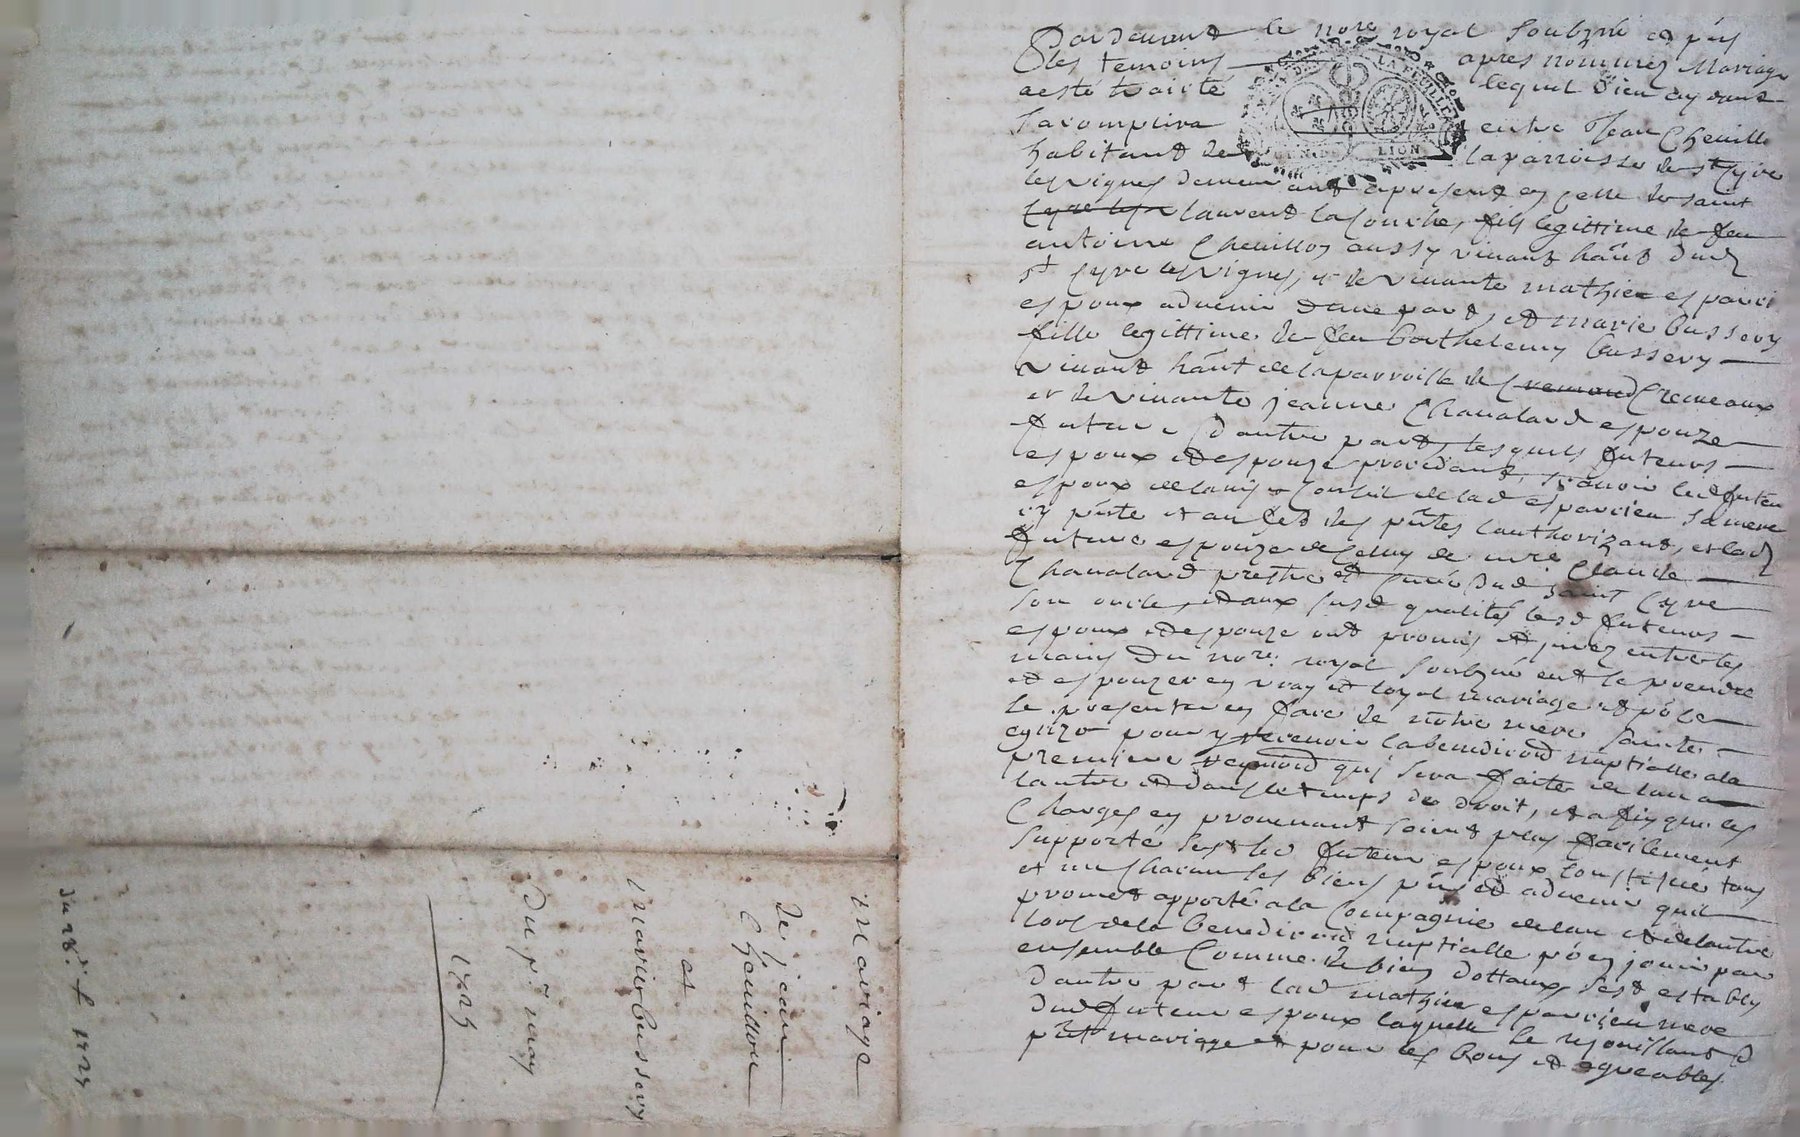 Pardevant le nore royal soubzné et pñs
les temoins apres nommez Mariage
a esté traicté lequel dieu aydant
sacomplira entre Jean Cheuillo
habitant de la parroisse de st Cyre
les vignes demeurant apresent en celle de saint
laurent la Conche, fils legittime de feu
antoine Cheuillon aussy vivant hãnt dud
st Cyre les vignes, et de vivante mathie espaici
espoux advenir d'une part, et marie bussery
fille legittime de feu barthelemy bussery
vivant hãnt de la parroisse de Cremeaux
et de vivante jeanne Chaualard espouze
future d'autre part, lesquels futeurs
espoux et espouze procedant, sçauoir led futeu
espoux de lauis et Conseil de lad espaicieu sa mere
icy pñte et au sed des pñtes lauthorizant, et lad
future espouze de celuy de mre Claude
Chaualard prestre et Curé dud saint Cyre
son oncle, et aux susd qualités lesd futeurs
espoux et espouze ont promis et jurez entre les
mains du nore royal soubzné en se prendre
et espouzer en vray et loyal mariage et p̃ ce
se presenter en face de nõtre mere sainte
eglize pour y recevoir la benediction nuptialle a la
premiere requisition qui sera faite de lun a
lautre et dans le temps de droit, et afin que les
Charges en provenant soient plus facilement
supporté sest led futeur espoux Constitué tous
et un chacun ses biens pñs et advenir quil
promet apporté a la Compagnie de lun et de lautre
lors de la benediction nuptialle p̃ en jouir par
ensemble Comme de bien dottaux, sest estably
d'autre part lad mathie espaicieu mere
dud futeur espoux laquelle se rejouissant d
pñt mariage et pour les bons et agreables
mariage
de jean
Cheuillon
et
marie bussery
du pr may
1725